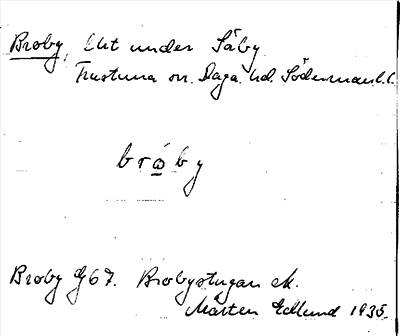 Broby, Utt under Säby
Frustuna sn. Daga hd. Södermanl. l.
bråby
Broby Eg 67. Brobystugan ek.
Mårten Edlund 1935.